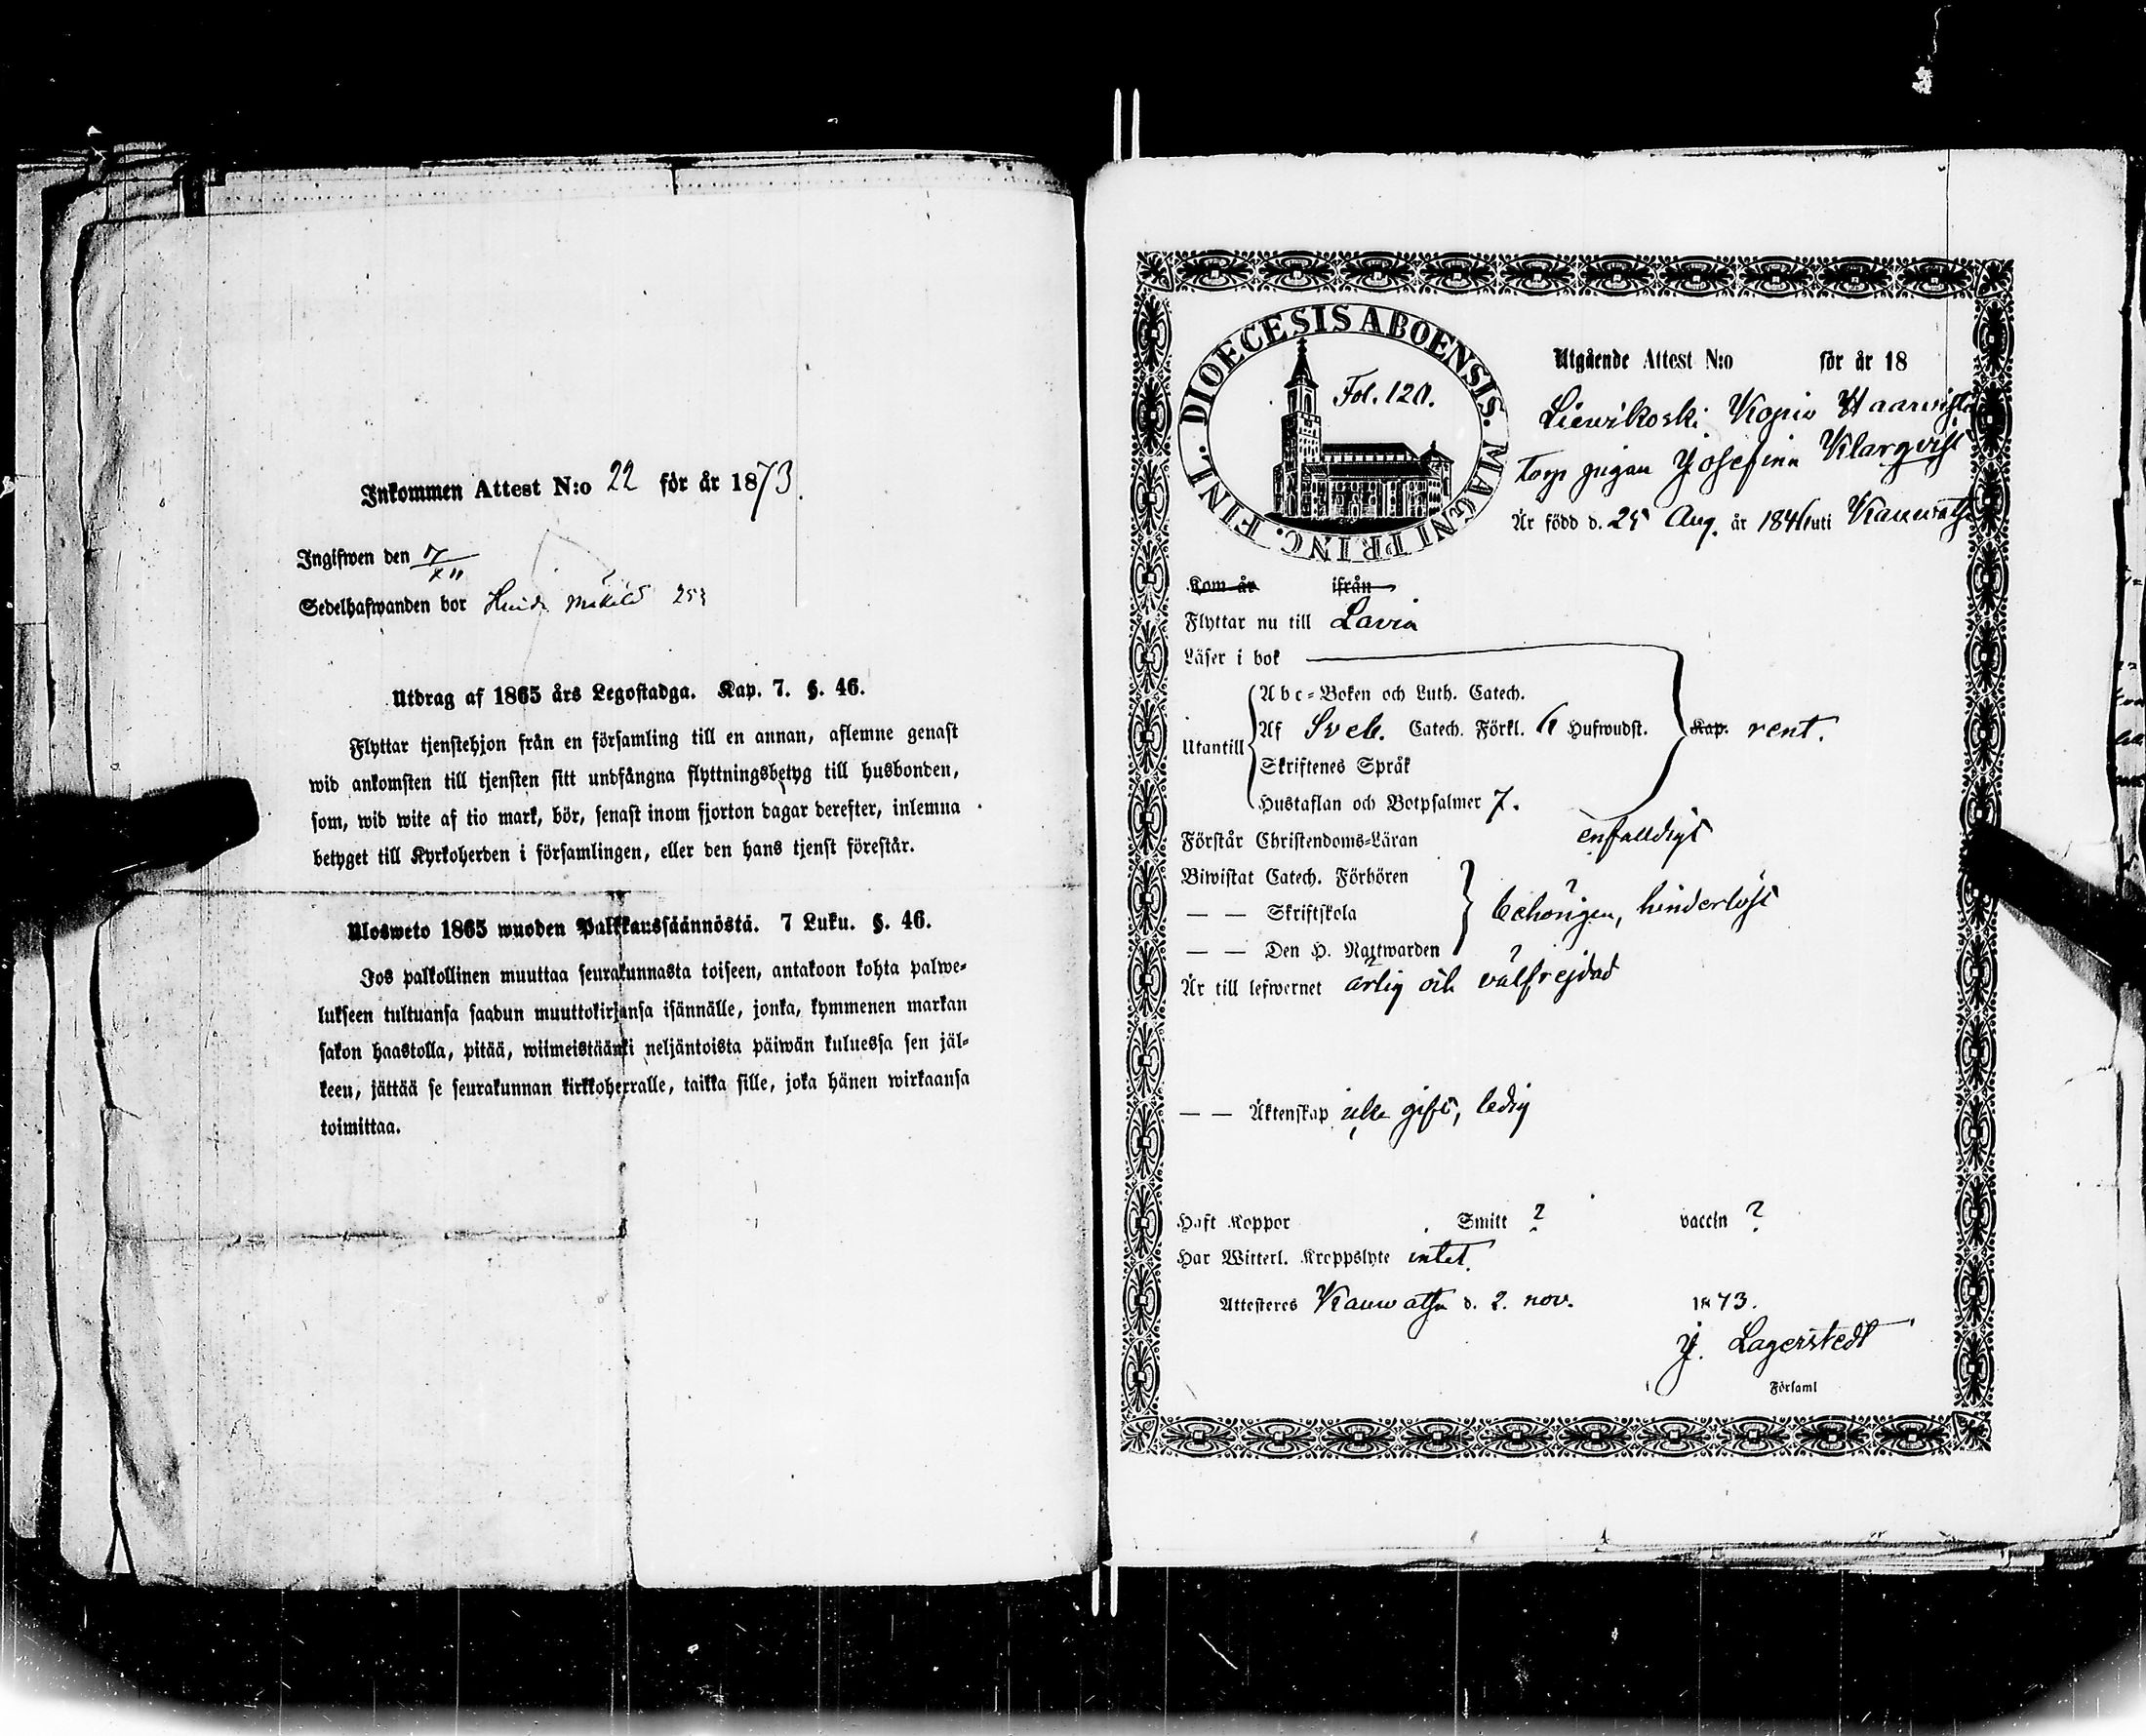 Inkommen Attest N:o 22 för år 1873.
Ingifwen den 7/XII
Sedelhafwanden bor 253
Utdrag af 1865 års Legostadga. Kap. 7. §. 46.
Flyttar tjenstehjon från en församling till en annan, aflemne genast
wid ankomsten till tjensten sitt undfångna flyttningsbetyg till husbonden,
som, wid wite af tio mark, bör, senast inom fjorton dagar derefter, inlemna
betyget till Kyrkoherden i församlingen, eller den hans tjenst förestår.
Ulosweto 1865 wuoden Palkkaussäännöstä. 7 Luku. §. 46.
Jos palkollinen muuttaa seurakunnasta toiseen, antakoon kohta palwe-
lukseen tultuansa saadun muuttokirjansa isännälle, jonka, kymmenen markan
sakon haastolla, pitää, wiimeistäänki neljäntoista päiwän kuluessa sen jäl-
keen, jättää se seurakunnan kirkkoherralle, taikka sille, joka hänen wirkaansa
toimittaa.
DIOECESIS ABOENSIS. MAGNI PRINC. FINL.
Fol. 120.
Utgående Attest N:o för år 18
Liewikoski Kopio Haarvista
torp pigan Josefina Klarqvist
Är född d. 25 Aug. år 1846 uti Kauwatsa
Kom år ifrån
Flyttar nu till Lavia
Läser i bok
Utantill
Abc-Boken och Luth. Catech.
Af Sveb. Catech. Förkl. 6 Hufwudst.
Kap. rent.
Skriftenes Språk
Hustaflan och Botpsalmer 7.
Förstår Christendoms-Läran enfaldigt
Biwistat Catech. Förhören
— — Skriftskola
behörigen, hinderlöst
— — Den H. Nattwarden
Är till lefwernet ärlig och välfrejdad
— — Äktenskap icke gift, ledig
Haft Koppor Smitt ? vaccin ?
Har Witterl. Kroppslyte intet.
Attesteres Kauwatsa d. 2. nov. 1873.
J. Lagerstedt
Församl